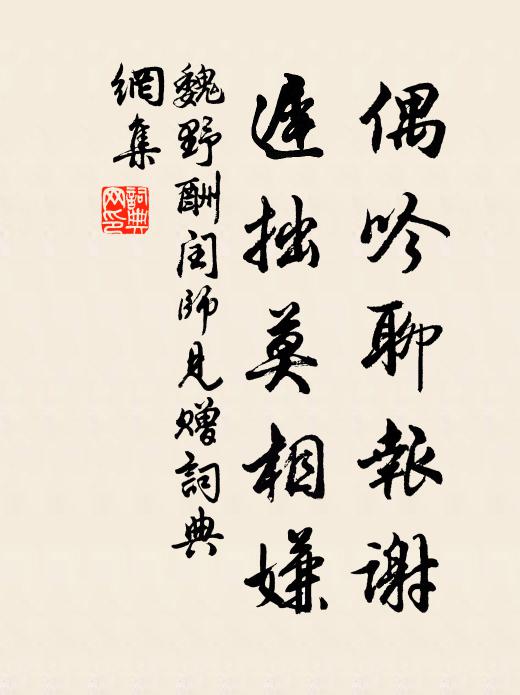 偶吟聊報謝
遲拙莫相嫌
魏野酬閏師見贈詞典
網集
詞典
网印